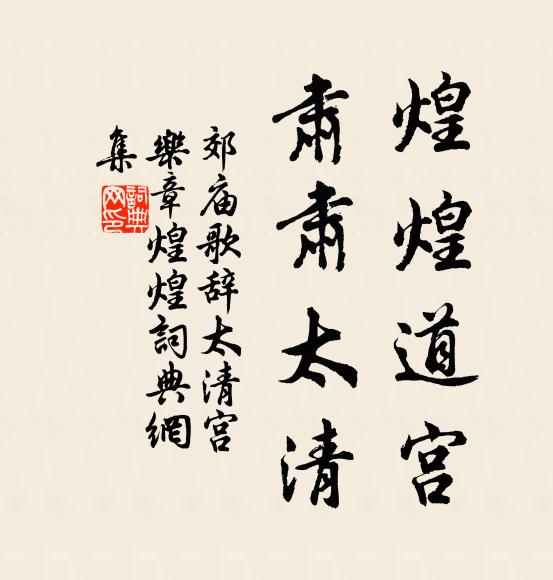 煌煌道宫
肃肃太清
郊庙歌辞太清宫
樂章煌煌詞典網
集
詞典
网印